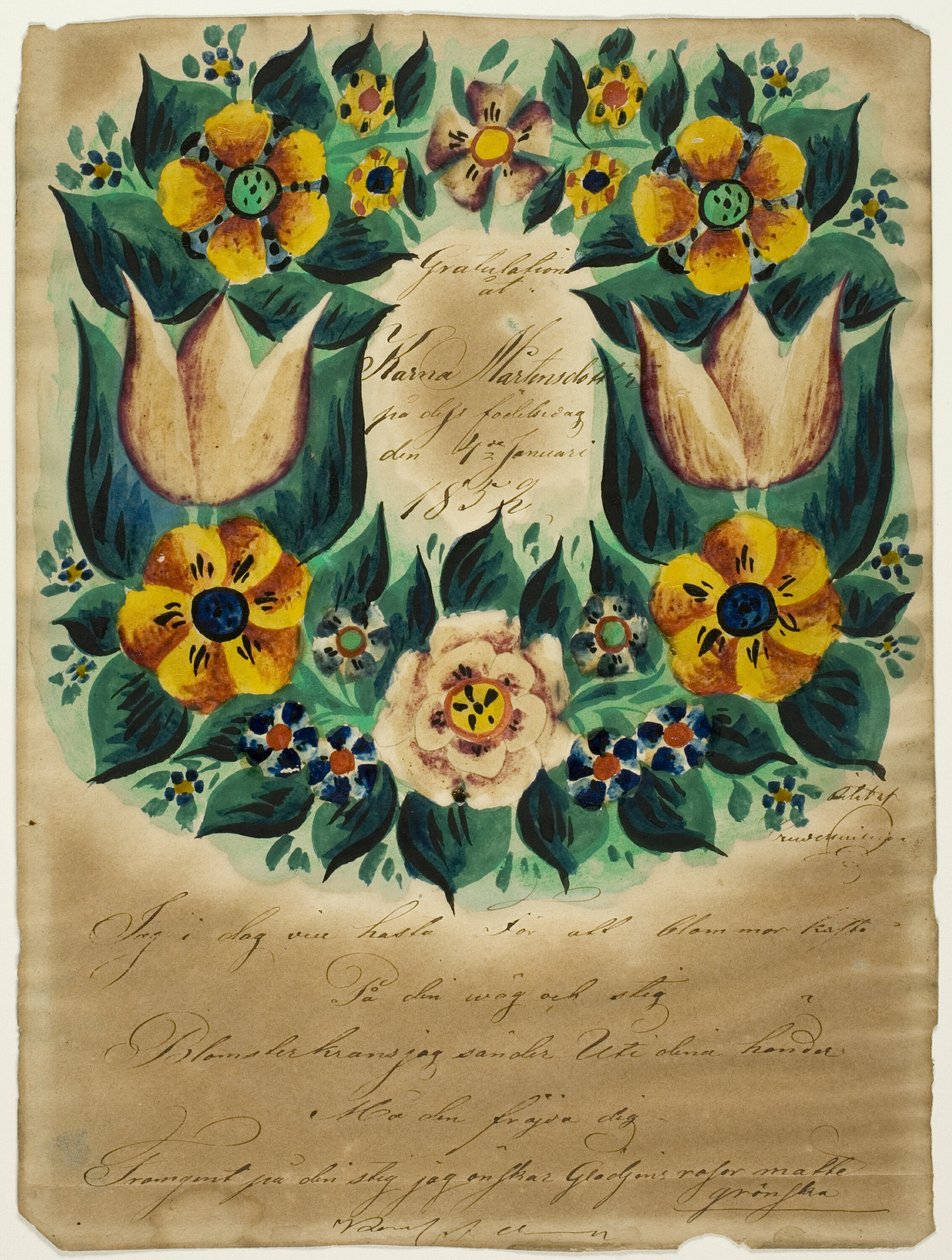 Gratulation
åt
Karna Mårtensdotter
på dess födelsedag
den 4de Januari
1852
Jag i dag vill hasta för att blommor kasta
På din wäg och stig
Blomsterkrans jag sänder Uti dina händer
Må den fröjda dig
Framgent på din stig jag önskar Glädjens rosor måtte
grönska